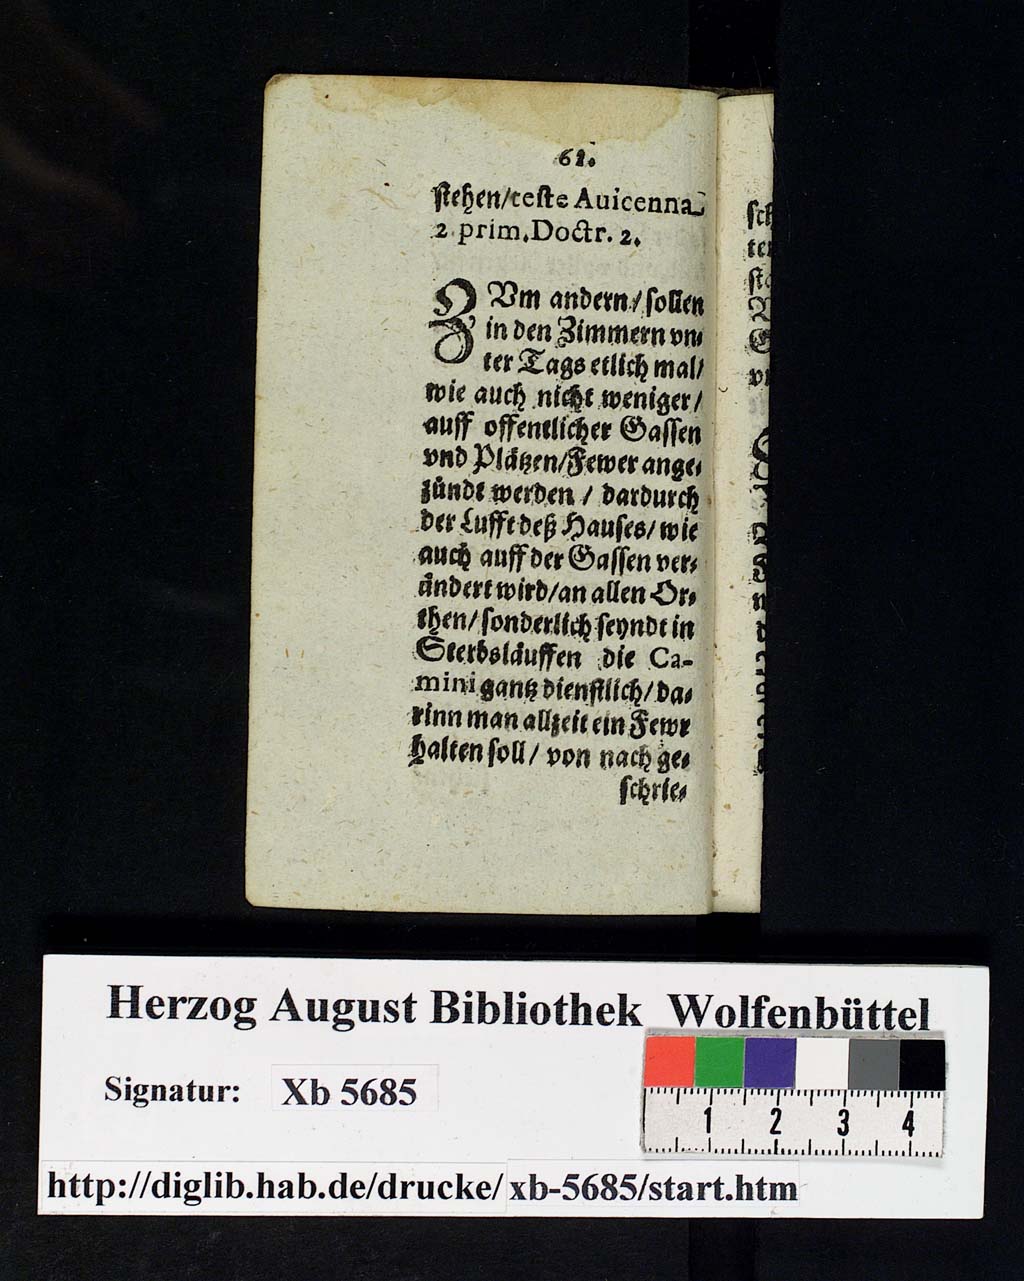 61.
stehen/teste Auicenna
2. prim. Doctr. 2.
ZVm andern/ sollen
in den Zimmern vn-
ter Tags etlich mal/
wie auch nicht weniger/
auff offentlicher Gassen
vnd Plätzen/Fewer ange-
zündt werden / dardurch
der Lufft deß Hauses/ wie
auch auff der Gassen ver-
ändert wird/an allen Or-
then/ sonderlich seyndt in
Sterbsläuffen die Ca-
mini gantz dienstlich/ da-
rinn man allzeit ein Fewr
halten soll/ von nach ge-
schrie-
Herzog August Bibliothek Wolfenbüttel
Signatur: Xb 5685
1 2 3 4
http://diglib.hab.de/drucke/xb-5685/start.htm